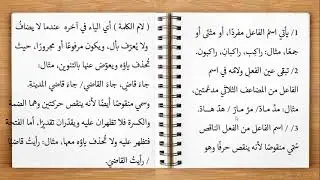 1/ يأتي اسم الفاعل مفردًا، أو مثنى أو
جمعًا، مثال: راكب، راكبانِ، راكبون.
2/ تبقى عين الفعل ولامه في اسم
الفاعل من المضاعف الثلاثي مدغمتين،
مثال: مدَّ مـادّ، مرَّ مـارّ، هدَّ هـادّ.
3/ اسم الفاعل من الفعل الناقص
سُمّي منقوصًا لأنه ينقص حرفًا وهو
( لام الكلمة ) أي الياء في آخره عندما لا يضافُ
ولا يُعرّف بأل، ويكون مرفوعًا أو مجرورًا، حيثُ
تُحذف ياؤه ويعوّض عنها بالتنوين، مثال:
جاء قاضٍ، جاء القاضي/ جاء قاضي المدينةِ.
وسمي منقوصًا أيضًا لأنه ينقص حركتين وهما الضمة
والكسرة فلا تظهران عليه ويقدّران تقديرًا، أما الفتحة
فتظهر عليه ولا تُحذف ياؤه معها، مثال: رأيتُ قاضيًا
/ رأيتُ القاضيَ.